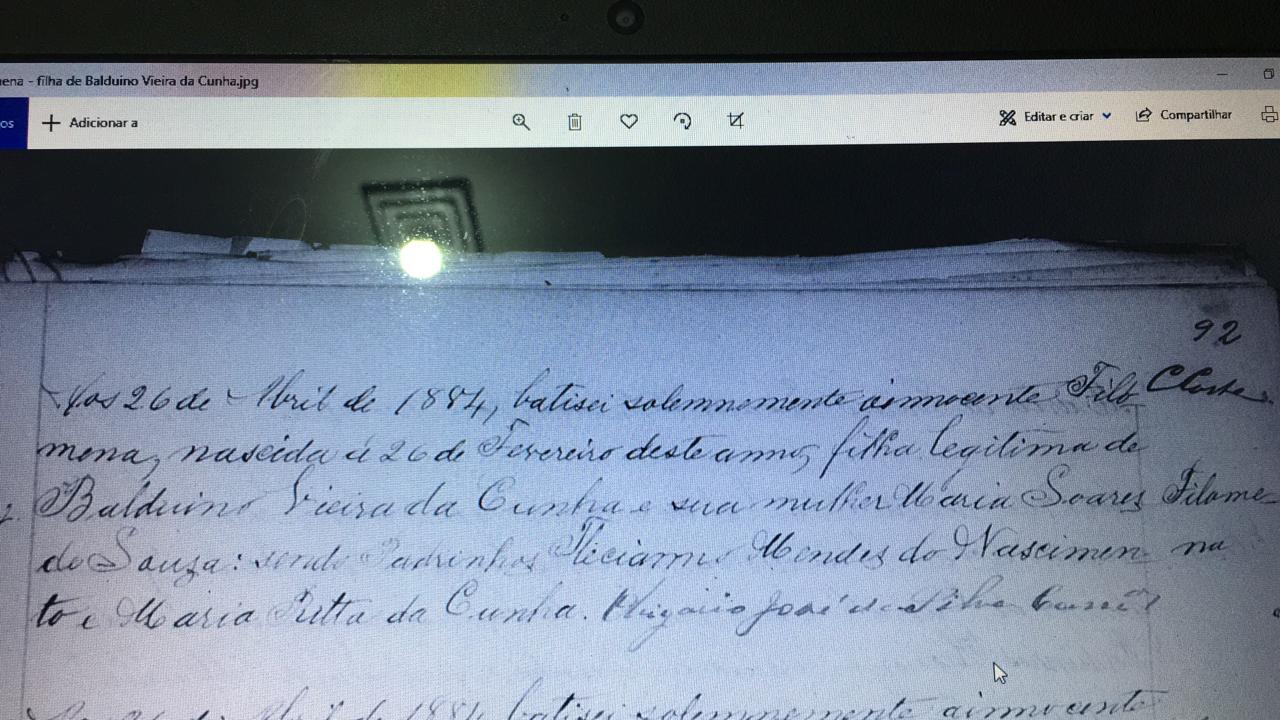 ena - filha de Balduino Vieira da Cunha.jpg
os
Adicionar a
Editar e criar
Compartilhar
92
Aos 26 de Abril de 1884, batisei solemnemente a innocente Filo
mena, nascida á 26 de Fevereiro deste anno, filha legitima de
Balduino Vieira da Cunha e sua mulher Maria Soares
de Souza: sendo Padrinhos Feliciano Mendes do Nascimen
to e Maria Ritta da Cunha. O Vigario José da Silva
Filome
na
26 de Abril de 1884 batisei solemnemente a innocente